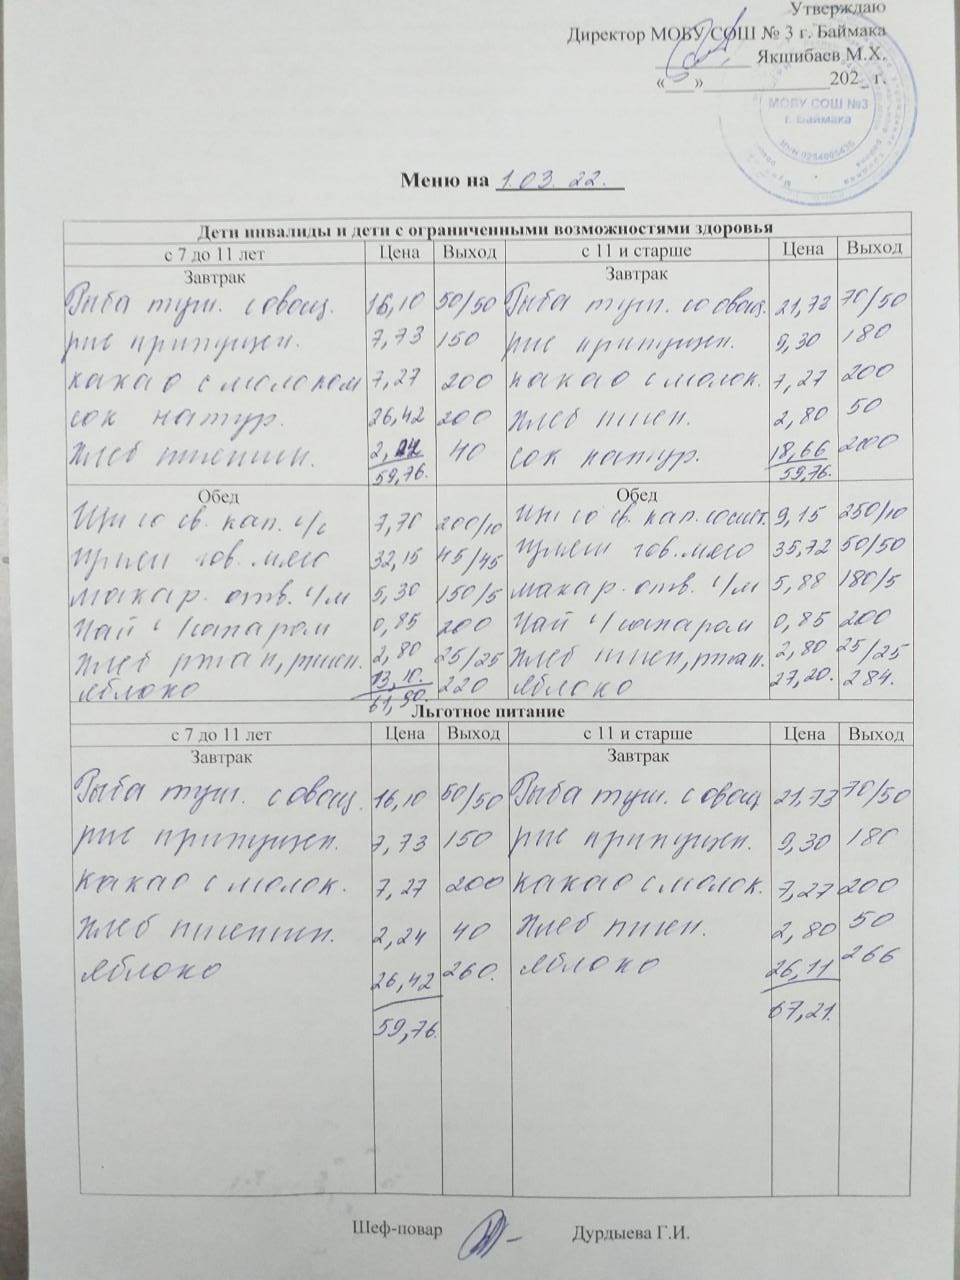 Утверждаю
Директор МОБУ СОШ № 3 г. Баймака
Якшибаев М.Х.
«___»______________202_ г.
МОБУ СОШ №3
г. Баймака
Меню на 1.03. 22.
Дети инвалиды и дети с ограниченными возможностями здоровья
с 7 до 11 лет Цена Выход с 11 и старше Цена Выход
Завтрак Завтрак
Рыба туш. с овощ. 16,10 50/50 Рыба туш. со овощ. 21,73 70/50
рис припущен. 7,73 150 рис припущен. 9,30 180
какао с молоком 7,27 200 какао с молок. 7,27 200
сок натур. 26,42 200 хлеб пшен. 2,80 50
хлеб пшенич. 2,24 40 сок натур. 18,66 200
59,76. 59,76.
Обед Обед
Щи со св. кап. с/с 7,70 200/10 Щи со св. кап. со смет. 9,15 250/10
Гуляш гов. мясо 32,15 45/45 Гуляш гов. мясо 35,72 50/50
макар. отв. с/м 5,30 150/5 макар. отв. с/м 5,88 180/5
Чай с/сахаром 0,85 200 Чай с/сахаром 0,85 200
Хлеб ржан, пшен. 2,80 25/25 Хлеб пшен, ржан. 2,80 25/25
яблоко 13,10. 220 яблоко 27,20. 284.
61,90.
Льготное питание
с 7 до 11 лет Цена Выход с 11 и старше Цена Выход
Завтрак Завтрак
Рыба туш. с овощ. 16,10 50/50 Рыба туш. с овощ 21,73 70/50
рис припущен. 7,73 150 рис припущен. 9,30 180
какао с молок. 7,27 200 какао с молок. 7,27 200
Хлеб пшенич. 2,24 40 Хлеб пшен. 2,80 50
яблоко 26,42 260. яблоко 26,11 266
59,76. 67,21.
Шеф-повар Дурдыева Г.И.